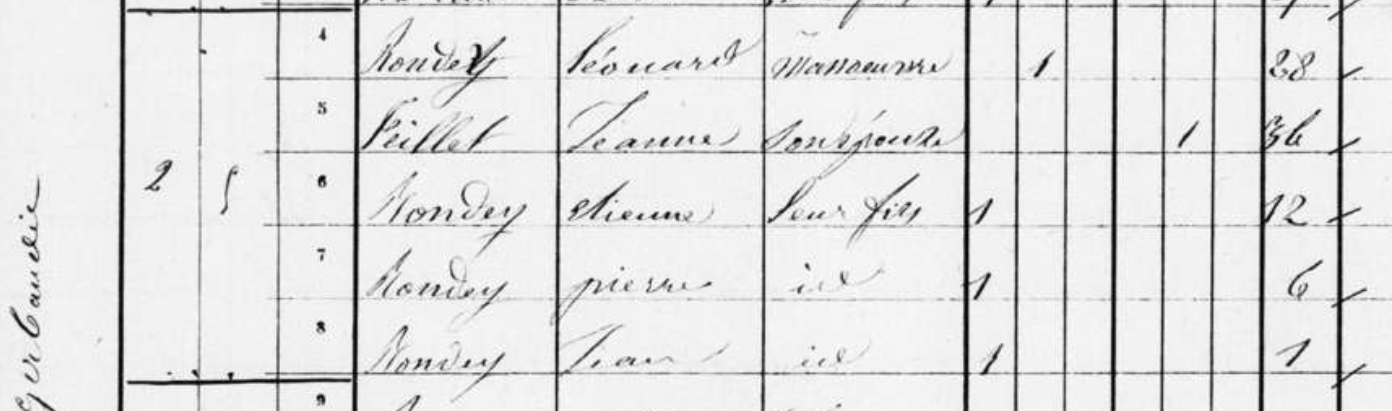 4 Rondey Léonard Manoeuvre 1 28
5 Feillet Jeanne son épouse 1 36
2 5 6 Rondey etienne leur fils 1 12
7 Rondey pierre id 1 6
8 Rondey Jean id 1 1
9